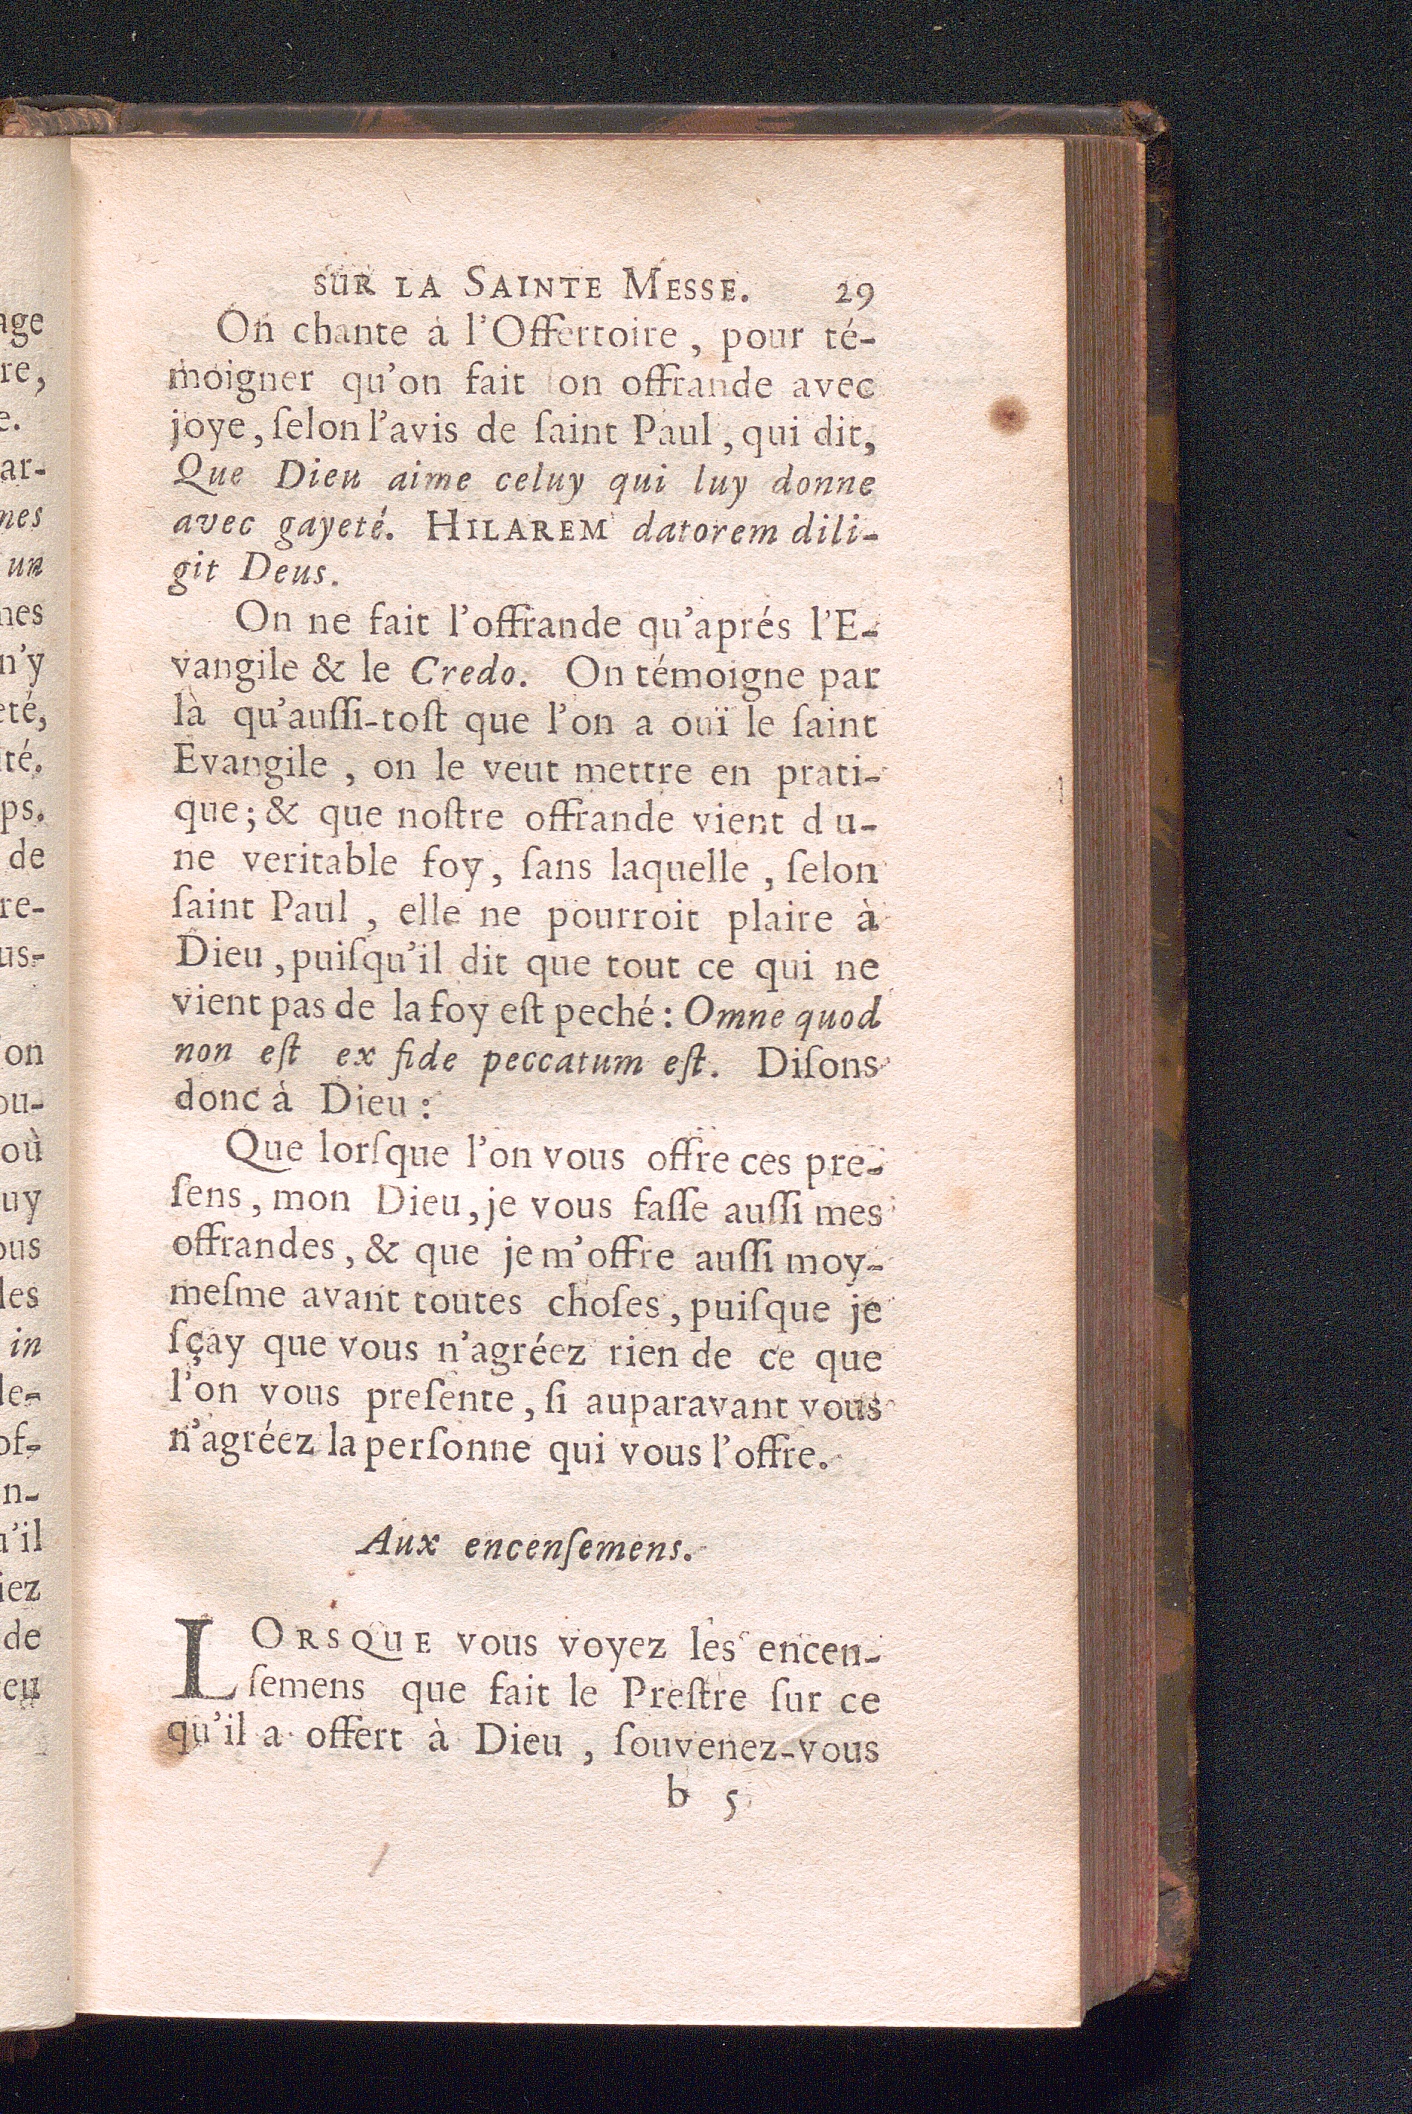 SUR LA SAINTE MESSE. 29
On chante à l'Offertoire, pour té-
moigner qu'on fait ſon offrande avec
joye, ſelon l'avis de ſaint Paul, qui dit,
Que Dieu aime celuy qui luy donne
avec gayeté. HILAREM datorem dili-
git Deus.
On ne fait l'offrande qu'aprés l'E-
vangile & le Credo. On témoigne par
là qu'auſſi-toſt que l'on a ouï le ſaint
Evangile, on le veut mettre en prati-
que; & que noſtre offrande vient d u-
ne veritable foy, ſans laquelle, ſelon
ſaint Paul, elle ne pourroit plaire à
Dieu, puiſqu'il dit que tout ce qui ne
vient pas de la foy eſt peché: Omne quod
non eſt ex fide peccatum eſt. Diſons
donc à Dieu:
Que lorſque l'on vous offre ces pre-
ſens, mon Dieu, je vous faſſe auſſi mes
offrandes, & que je m'offre auſſi moy-
meſme avant toutes choſes, puiſque je
ſçay que vous n'agréez rien de ce que
l'on vous preſente, ſi auparavant vous
n'agréez la perſonne qui vous l'offre.
Aux encenſemens.
LORSQUE vous voyez les encen-
ſemens que fait le Preſtre ſur ce
qu'il a offert à Dieu, ſouvenez-vous
b 5